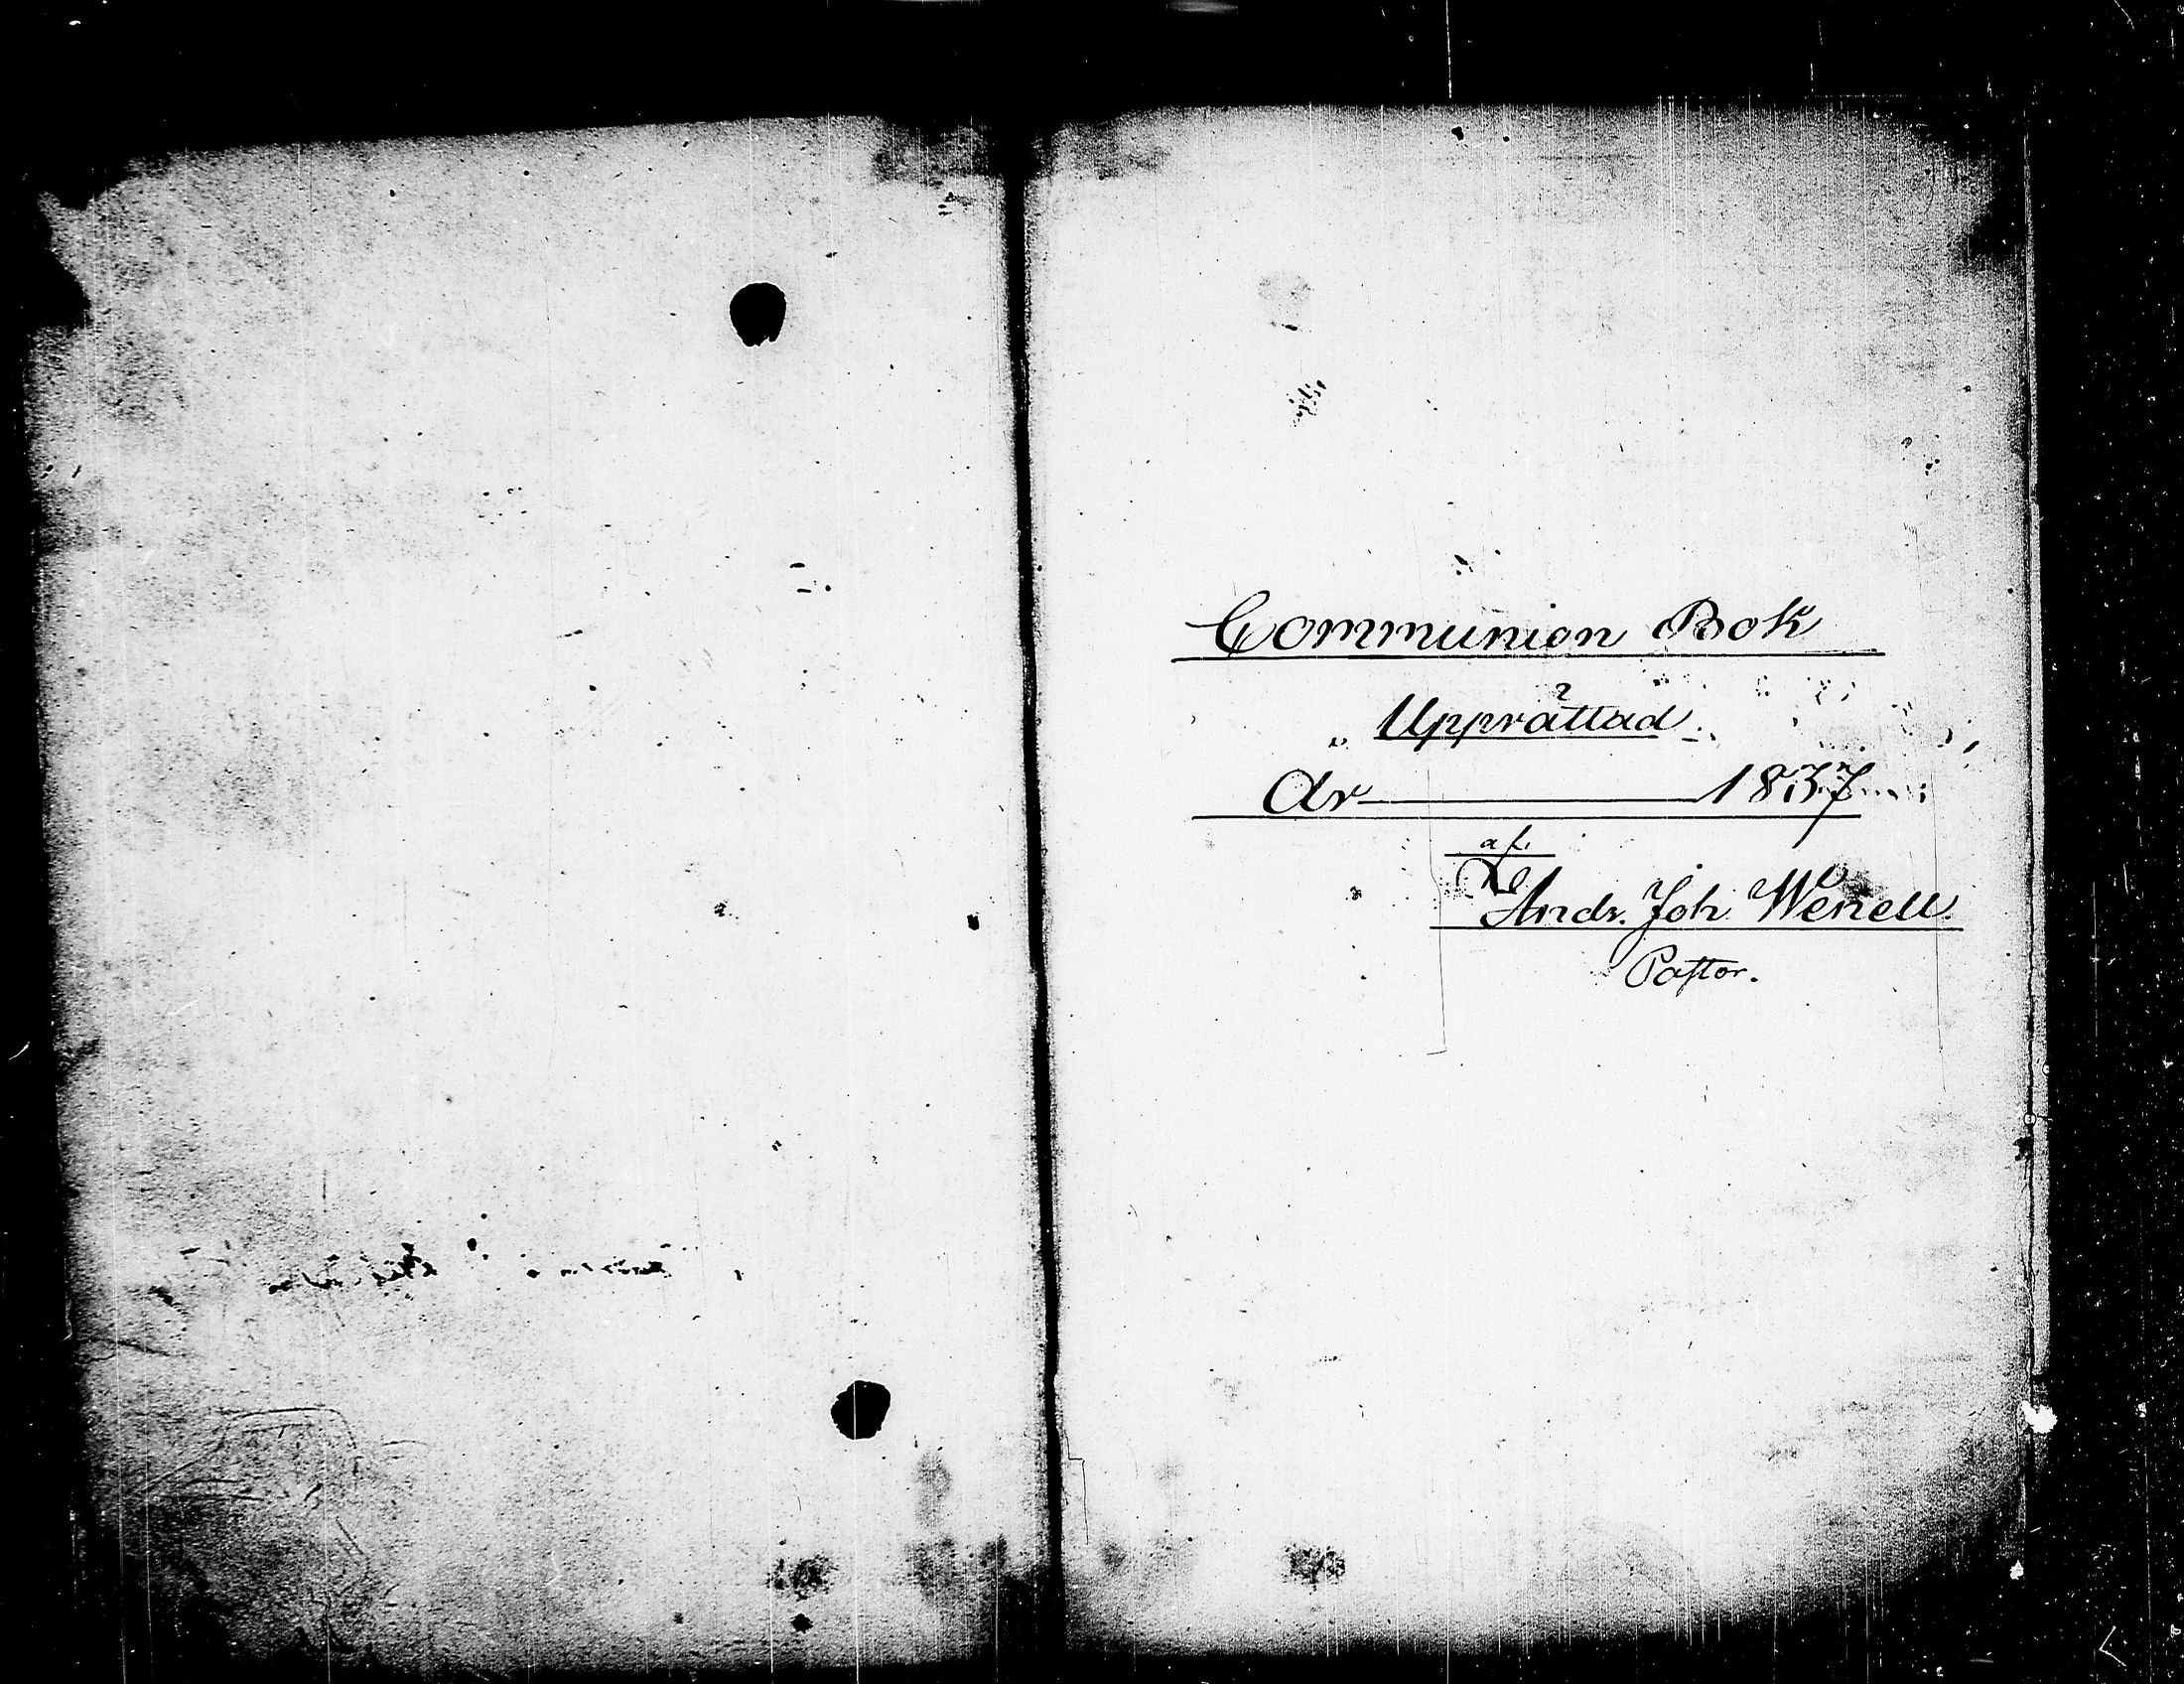 Communion Bok
Upprättad
År 1837
af
Andr. Joh Wenell.
Pastor.